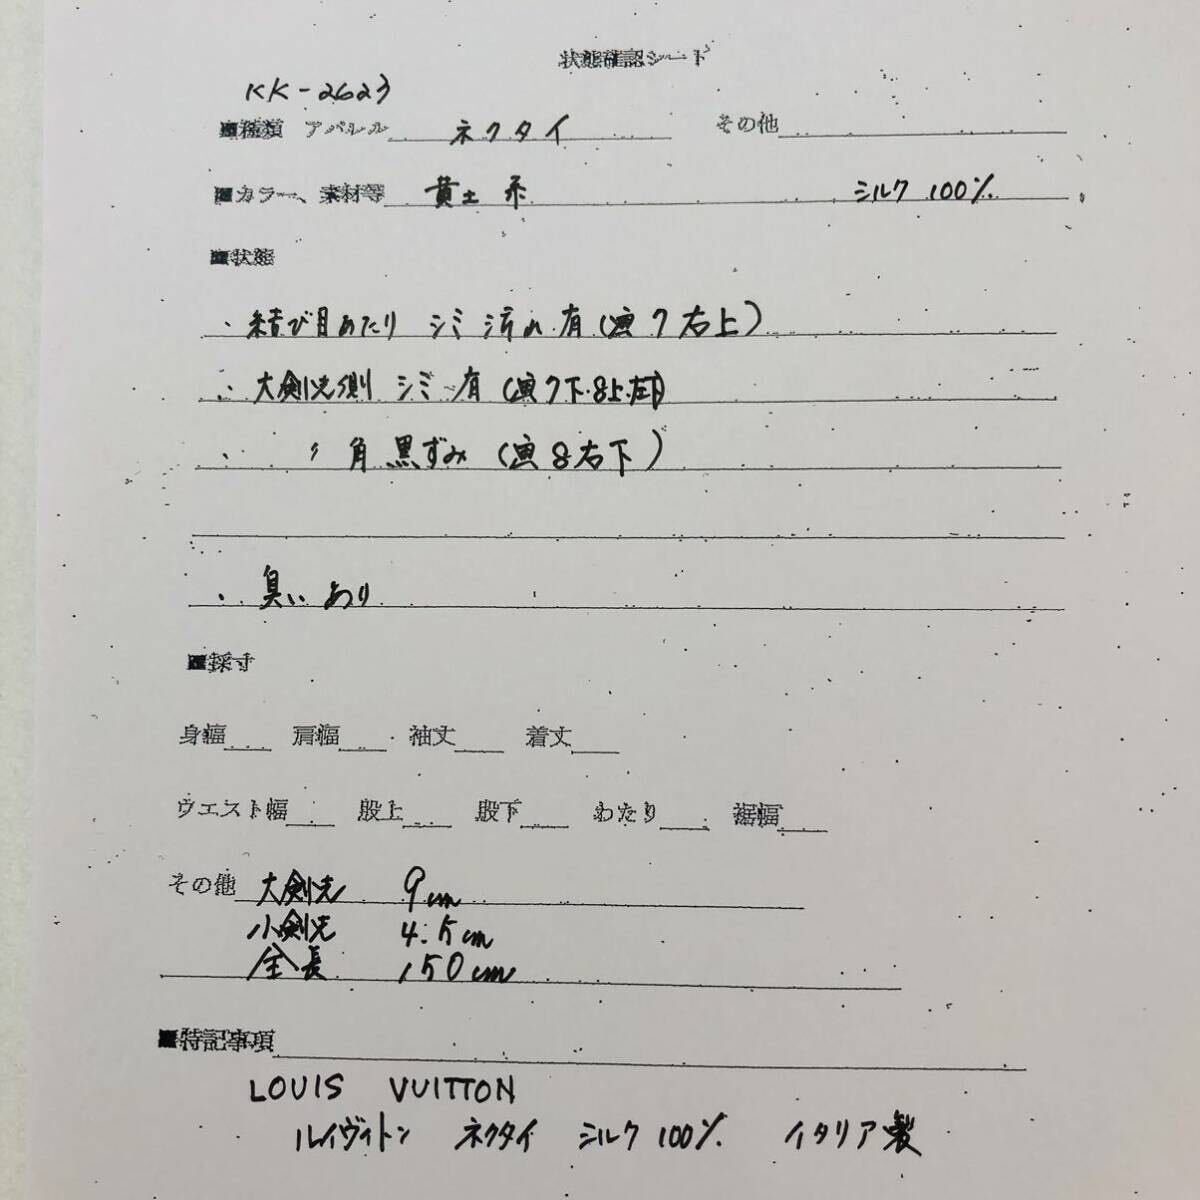 状態確認シート
KK-2623
■種類 アパレル ネクタイ その他
■カラー、素材等 黄土系 シルク 100%
■状態
・結び目あたり シミ 汚れ 有(画7右上)
・大剣先側 シミ 有(画7下・8上・左下)
・ 〃 角 黒ずみ(画8右下)
・臭い あり
■採寸
身幅 肩幅 袖丈 着丈
ウエスト幅 股上 股下 わたり 裾幅
その他 大剣先 9cm
小剣先 4.5cm
全長 150cm
■特記事項
LOUIS VUITTON
ルイヴィトン ネクタイ シルク 100% イタリア製